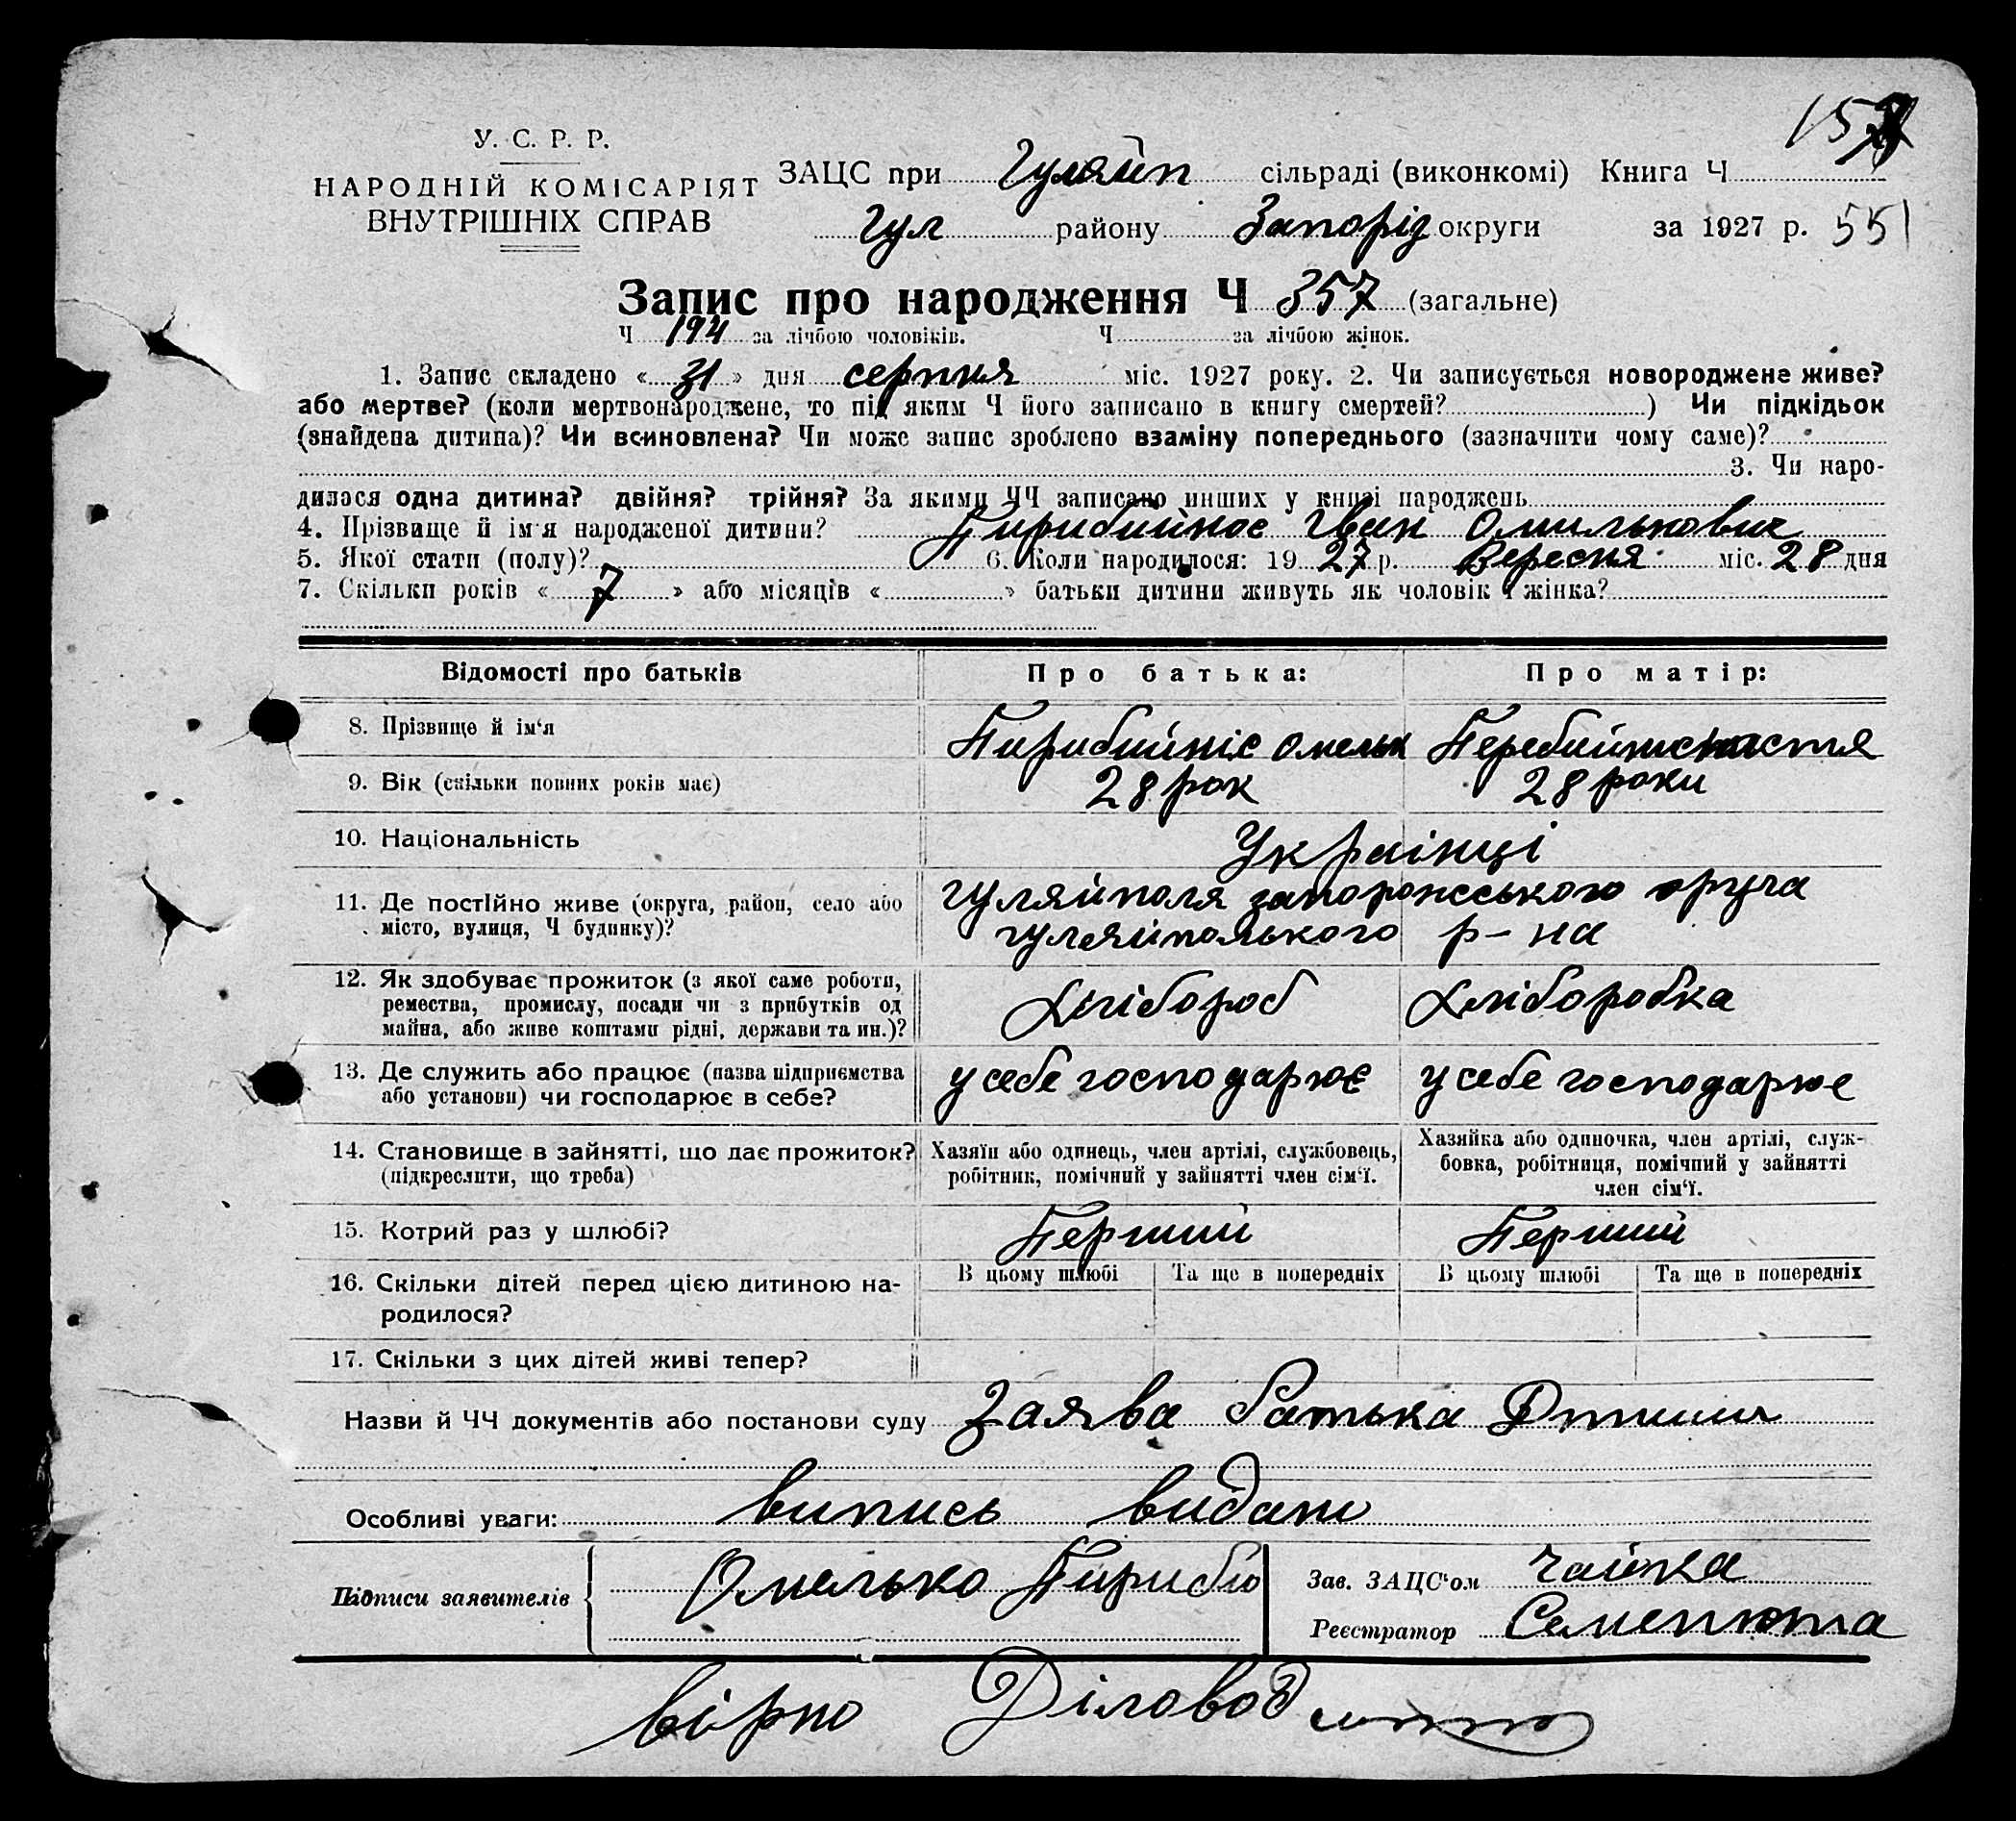 У. С. Р. Р.
НАРОДНІЙ КОМІСАРІЯТ
ВНУТРІШНІХ СПРАВ
ЗАЦС при Гуляйп сільраді (виконкомі) Книга Ч 157
Гул району Запорід округи за 1927 р. 551
Запис про народження Ч 357 (загальне)
Ч 194 за лічбою чоловіків. Ч за лічбою жінок.
1. Запис складено « 31 » дня серпня міс. 1927 року. 2. Чи записується новороджене живе?
або мертве? (коли мертвонароджене, то під яким Ч його записано в книгу смертей? ) Чи підкідьок
(знайдена дитина)? Чи всиновлена? Чи може запис зроблено взаміну попереднього (зазначити чому саме)?
3. Чи наро-
дилося одна дитина? двійня? трійня? За якими ЧЧ записано инших у книзі народжень
4. Прізвище й ім'я народженої дитини? Пирибийнос Іван Омилькович
5. Якої стати (полу)? 6. Коли народилося: 19 27 р. Вересня міс. 28 дня
7. Скільки років « 7 » або місяців « » батьки дитини живуть як чоловік і жінка?
Відомості про батьків Про батька: Про матір:
8. Прізвище й ім'я Пирибийніс Омельк Перебийнис настя
9. Вік (скільки повних років має) 28 рок 28 роки
10. Національність Українці
11. Де постійно живе (округа, район, село або місто, вулиця, Ч будинку)? Гуляйполя запорожського округа
гуляйпольского р-на
12. Як здобуває прожиток (з якої саме роботи, ремества, промислу, посади чи з прибутків од майна, або живе коштами рідні, держави та ин.)? Хлібороб Хліборобка
13. Де служить або працює (назва підприємства або установи) чи господарює в себе? у себе господарює у себе господарює
14. Становище в зайнятті, що дає прожиток? (підкреслити, що треба) Хазяїн або одинець, член артілі, службовець, робітник, помічний у зайнятті член сім'ї. Хазяйка або одиночка, член артілі, служ-
бовка, робітниця, помічний у зайнятті
член сім'ї.
15. Котрий раз у шлюбі? Перший Перший
16. Скільки дітей перед цією дитиною на-
родилося? В цьому шлюбі Та ще в попередніх В цьому шлюбі Та ще в попередніх
17. Скільки з цих дітей живі тепер?
Назви й ЧЧ документів або постанови суду Заява батька
Особливі уваги: випись видано
Підписи заявителів Омелько Пирибю
Зав. ЗАЦС'ом Чайка
Реєстратор Семенюта
вірно Діловод